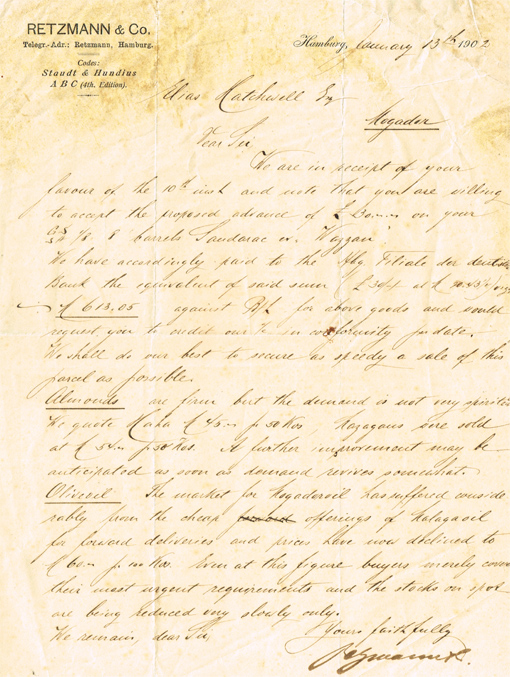 RETZMANN & Co.
Telegr.-Adr.: Retzmann, Hamburg.
Codes:
Staudt & Hundius
A B C (4th. Edition).
Hamburg, January 13th 1902
Elias Hatchwell Esq
Mogador
Dear Sir,
We are in receipt of your
favour of the 10th inst and note that you are willing
to accept the proposed advance of £ 30.-.- on your
8 barrels Sandarac ex. Wazzan
We have accordingly paid to the Hbg Filiale der deutschen
Bank the equivalent of said sum £ 30/- at
M 613,05 against B/L for above goods and would
request you to credit our in conformity p. date.
We shall do our best to secure as speedy a sale of this
parcel as possible.
Almonds are firm but the demand is not very spirited
We quote Haha M 45.- p. 50 Kos, Mazagans were sold
at M 54.- p. 50 Kos. A further improvement may be
anticipated as soon as demand revives somewhat.
Oliveoil The market for Mogadoroil has suffered conside
rably from the cheap offerings of Malagaoil
for forward deliveries and prices have now declined to
M 60.- p. Kos. Even at this figure buyers merely cover
their most urgent requirements and the stocks on spot
are being reduced very slowly only.
We remain, dear Sir,
Yours faithfully
Retzmann & Co.